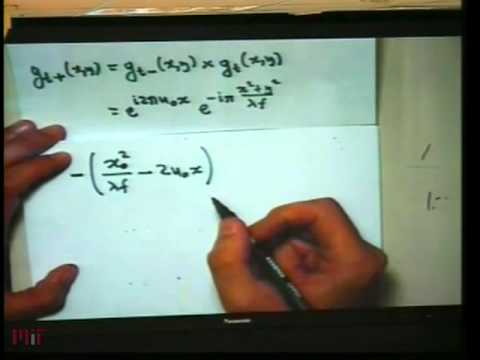 g_{t+}(x,y) = g_{t-}(x,y) × g_t(x,y)
= e^{i2πu_0x} e^{-iπ\frac{x^2+y^2}{λf}}
-(\frac{x_0^2}{λf} - 2u_0x)
Panasonic
MIT